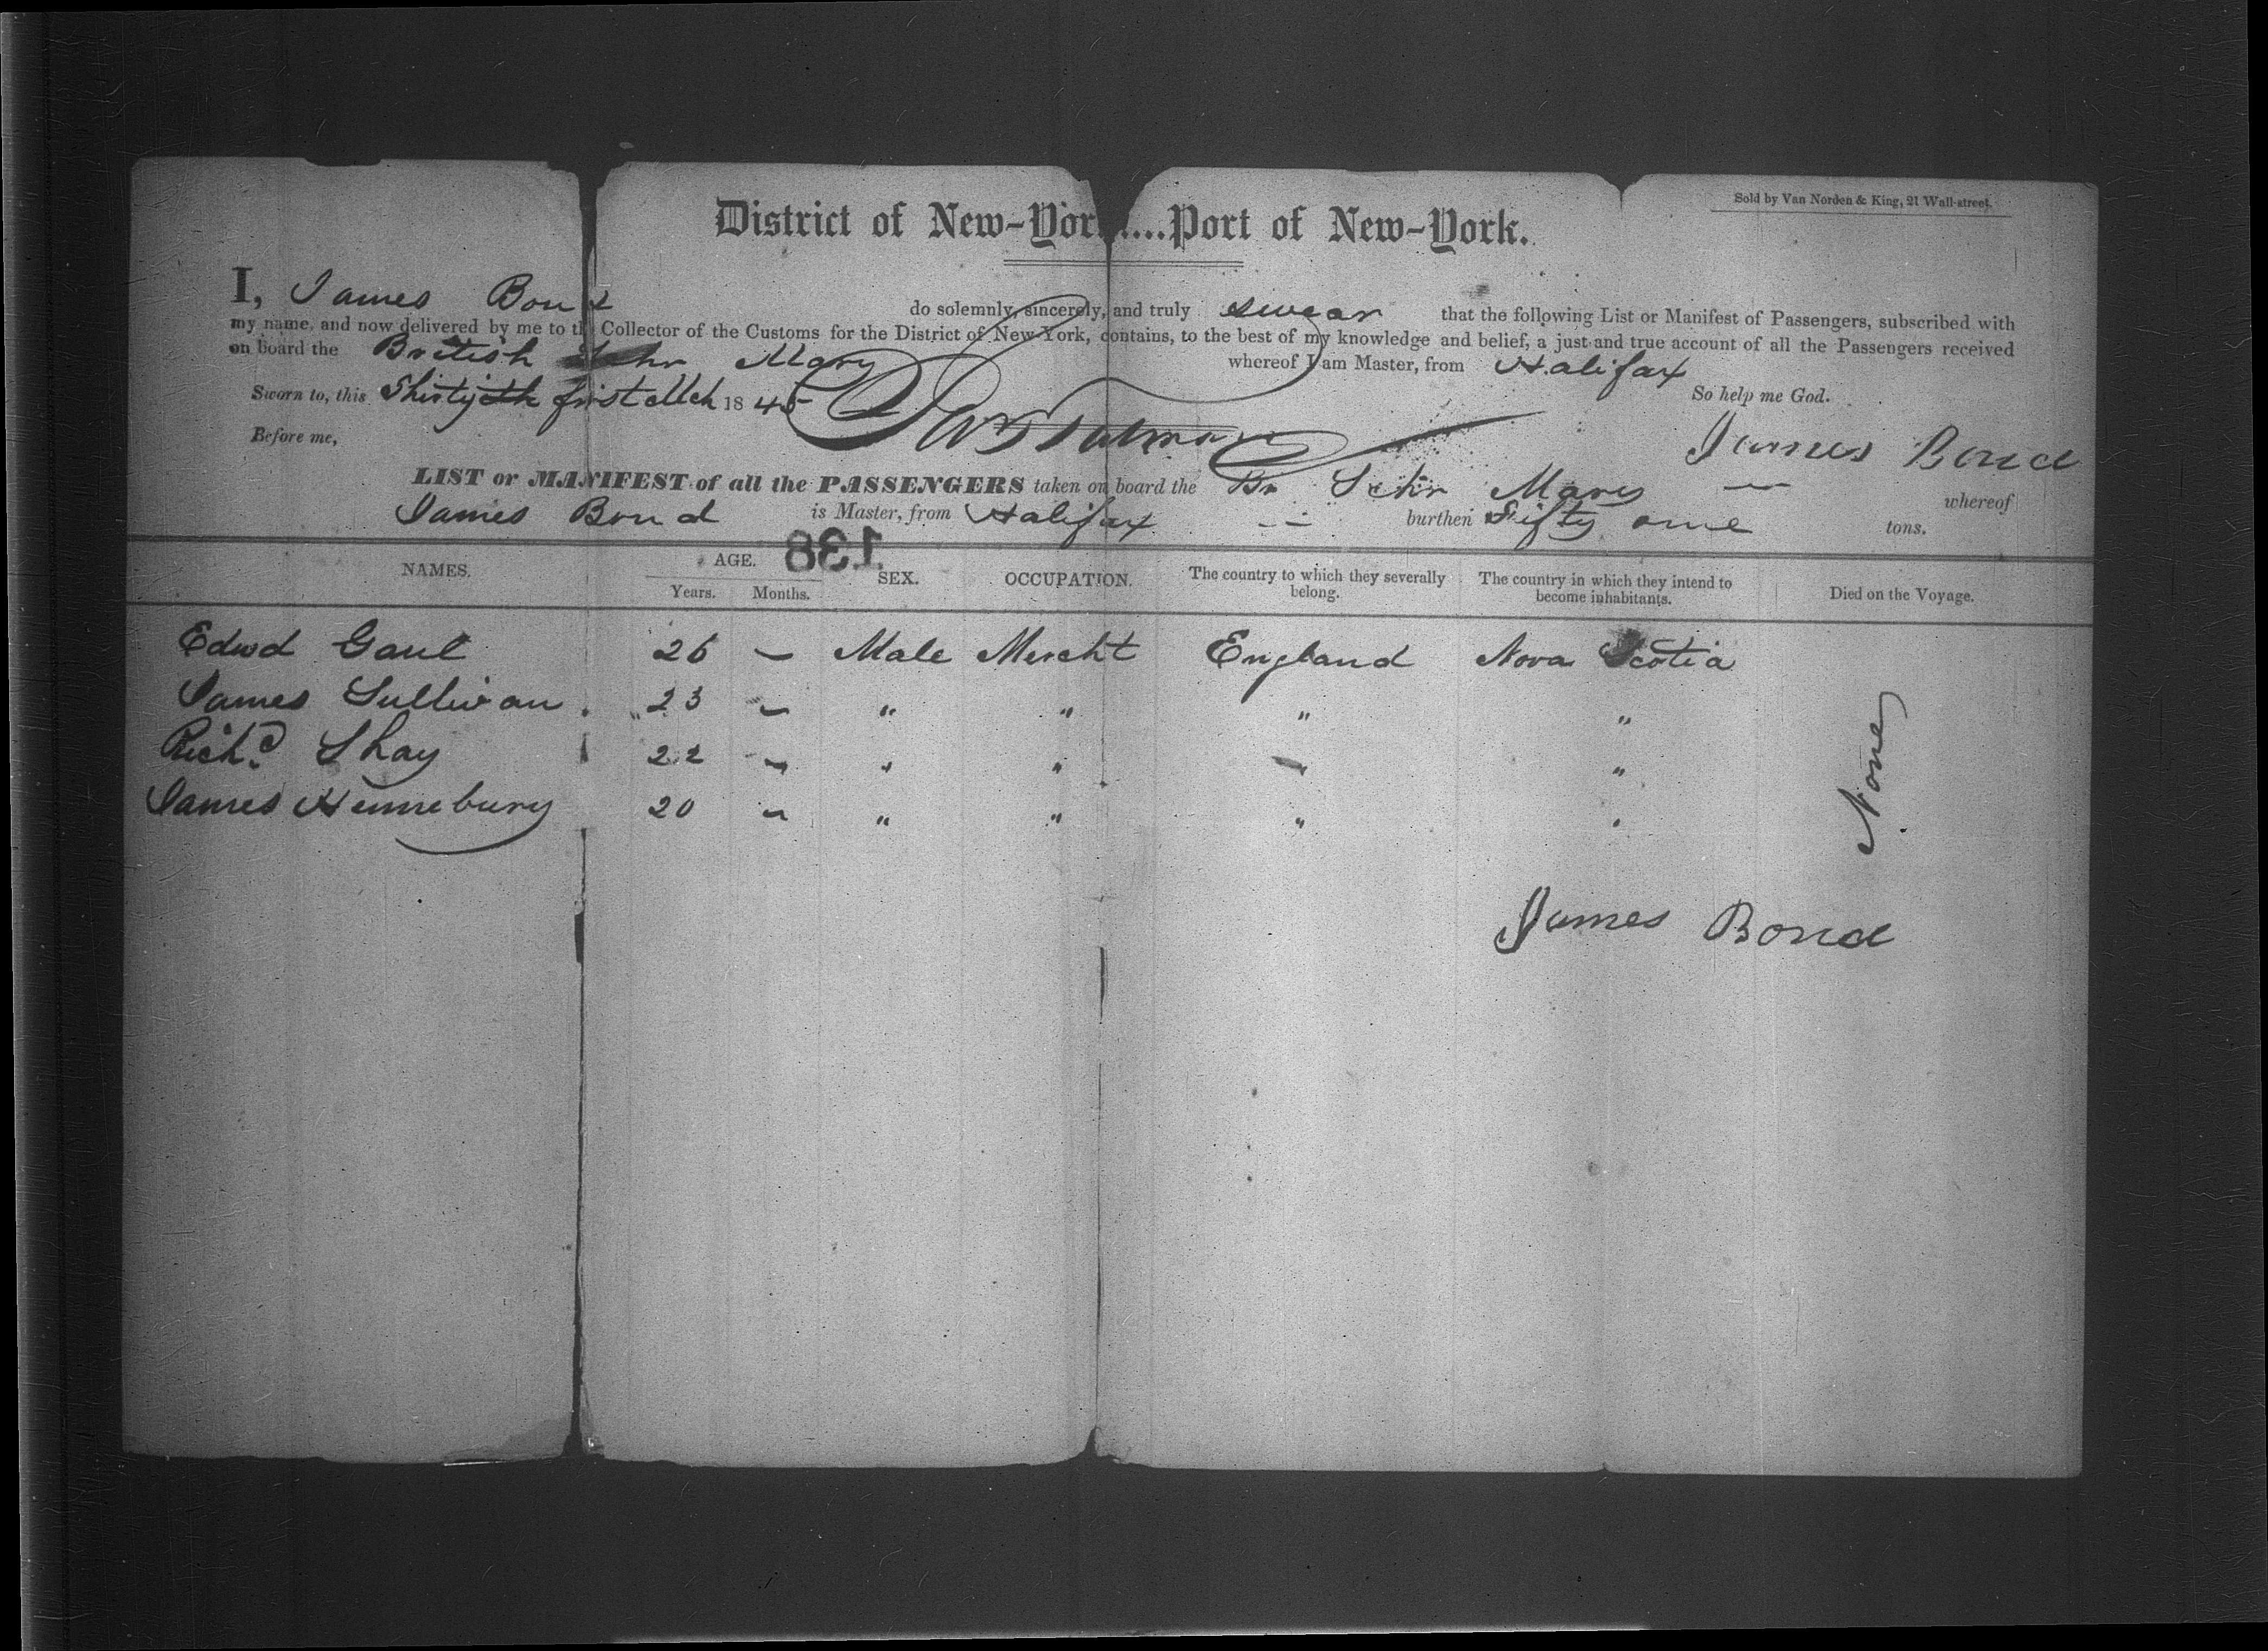 Sold by Van Norden & King, 21 Wall-street.
District of New-York....Port of New-York.
I, James Bond do solemnly, sincerely, and truly swear that the following List or Manifest of Passengers, subscribed with
my name, and now delivered by me to the Collector of the Customs for the District of New-York, contains, to the best of my knowledge and belief, a just and true account of all the Passengers received
on board the British Schr Mary whereof I am Master, from Halifax
Sworn to, this Thirtyeth first Mch 1845 So help me God.
Before me, James Bond
LIST or MANIFEST of all the PASSENGERS taken on board the Br Schr Mary — whereof
James Bond is Master, from Halifax -- burthen Fifty one tons.
138
NAMES. AGE. Years. Months. SEX. OCCUPATION. The country to which they severally belong. The country in which they intend to become inhabitants. Died on the Voyage.
Edwd Gaul 26 — Male Mercht England Nova Scotia
James Sullivan 23 — " " " "
Richd Shay 22 — " " " "
James Hennebury 20 — " " " "
None
James Bond